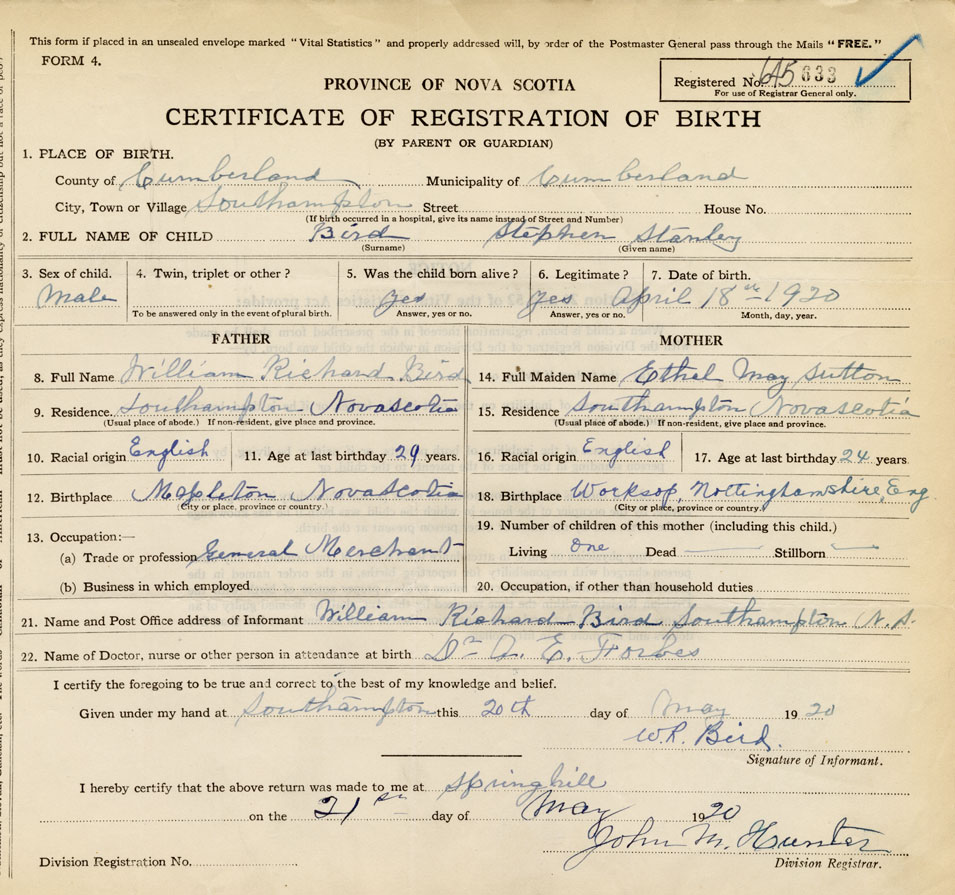 This form if placed in an unsealed envelope marked "Vital Statistics" and properly addressed will, by order of the Postmaster General pass through the Mails "FREE."
FORM 4.
Registered No. 645 633
For use of Registrar General only.
PROVINCE OF NOVA SCOTIA
CERTIFICATE OF REGISTRATION OF BIRTH
(BY PARENT OR GUARDIAN)
1. PLACE OF BIRTH.
County of Cumberland Municipality of Cumberland
City, Town or Village Southampton Street House No.
(If birth occurred in a hospital, give its name instead of Street and Number)
2. FULL NAME OF CHILD Bird Stephen Stanley
(Surname) (Given name)
3. Sex of child. 4. Twin, triplet or other? 5. Was the child born alive? 6. Legitimate? 7. Date of birth.
Male yes yes April 18th 1920
To be answered only in the event of plural birth. Answer, yes or no. Answer, yes or no. Month, day, year.
FATHER MOTHER
8. Full Name William Richard Bird 14. Full Maiden Name Ethel May Sutton
9. Residence. Southampton Novascotia 15. Residence Southampton Novascotia
(Usual place of abode.) If non-resident, give place and province. (Usual place of abode.) If non-resident, give place and province.
10. Racial origin English 11. Age at last birthday 29 years. 16. Racial origin English 17. Age at last birthday 24 years.
12. Birthplace Mapleton Novascotia 18. Birthplace Worksop, Nottinghamshire, Eng.
(City or place, province or country.) (City or place, province or country.)
13. Occupation:— 19. Number of children of this mother (including this child.)
(a) Trade or profession General Merchant Living One Dead — Stillborn —
(b) Business in which employed 20. Occupation, if other than household duties
21. Name and Post Office address of Informant William Richard Bird Southampton N.S.
22. Name of Doctor, nurse or other person in attendance at birth Dr A. E. Forbes
I certify the foregoing to be true and correct to the best of my knowledge and belief.
Given under my hand at Southampton this 20th day of May 1920
W.R. Bird.
Signature of Informant.
I hereby certify that the above return was made to me at Springhill
on the 21st day of May 1920
John M. Hunter
Division Registration No. Division Registrar.